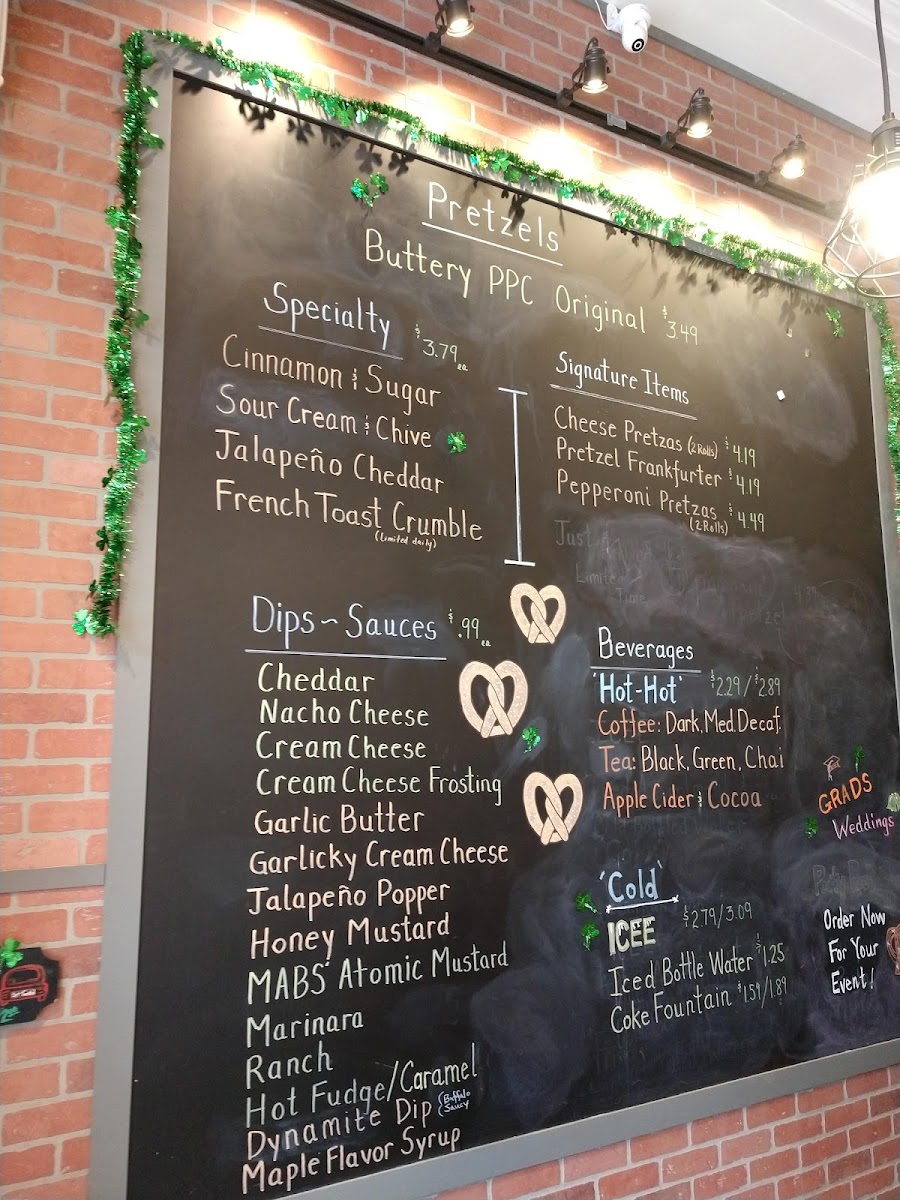 Pretzels
Buttery PPC Original $3.49
Specialty $3.79 ea
Cinnamon & Sugar
Sour Cream & Chive
Jalapeño Cheddar
French Toast Crumble
(Limited daily)
Signature Items
Cheese Pretzas (2 Rolls) $4.19
Pretzel Frankfurter $4.19
Pepperoni Pretzas $4.49
(2 Rolls)
Limited
Time
Dips ~ Sauces $.99 ea
Cheddar
Nacho Cheese
Cream Cheese
Cream Cheese Frosting
Garlic Butter
Garlicky Cream Cheese
Jalapeño Popper
Honey Mustard
MABS' Atomic Mustard
Marinara
Ranch
Hot Fudge/Caramel
Dynamite Dip (Buffalo Saucy
Maple Flavor Syrup
Beverages
'Hot-Hot' $2.29/$2.89
Coffee: Dark, Med. Decaf.
Tea: Black, Green, Chai
Apple Cider & Cocoa
'Cold'
ICEE $2.79/3.09
Iced Bottle Water $1.25
Coke Fountain $1.59/1.89
GRADS
Weddings
Order Now
For Your
Event!